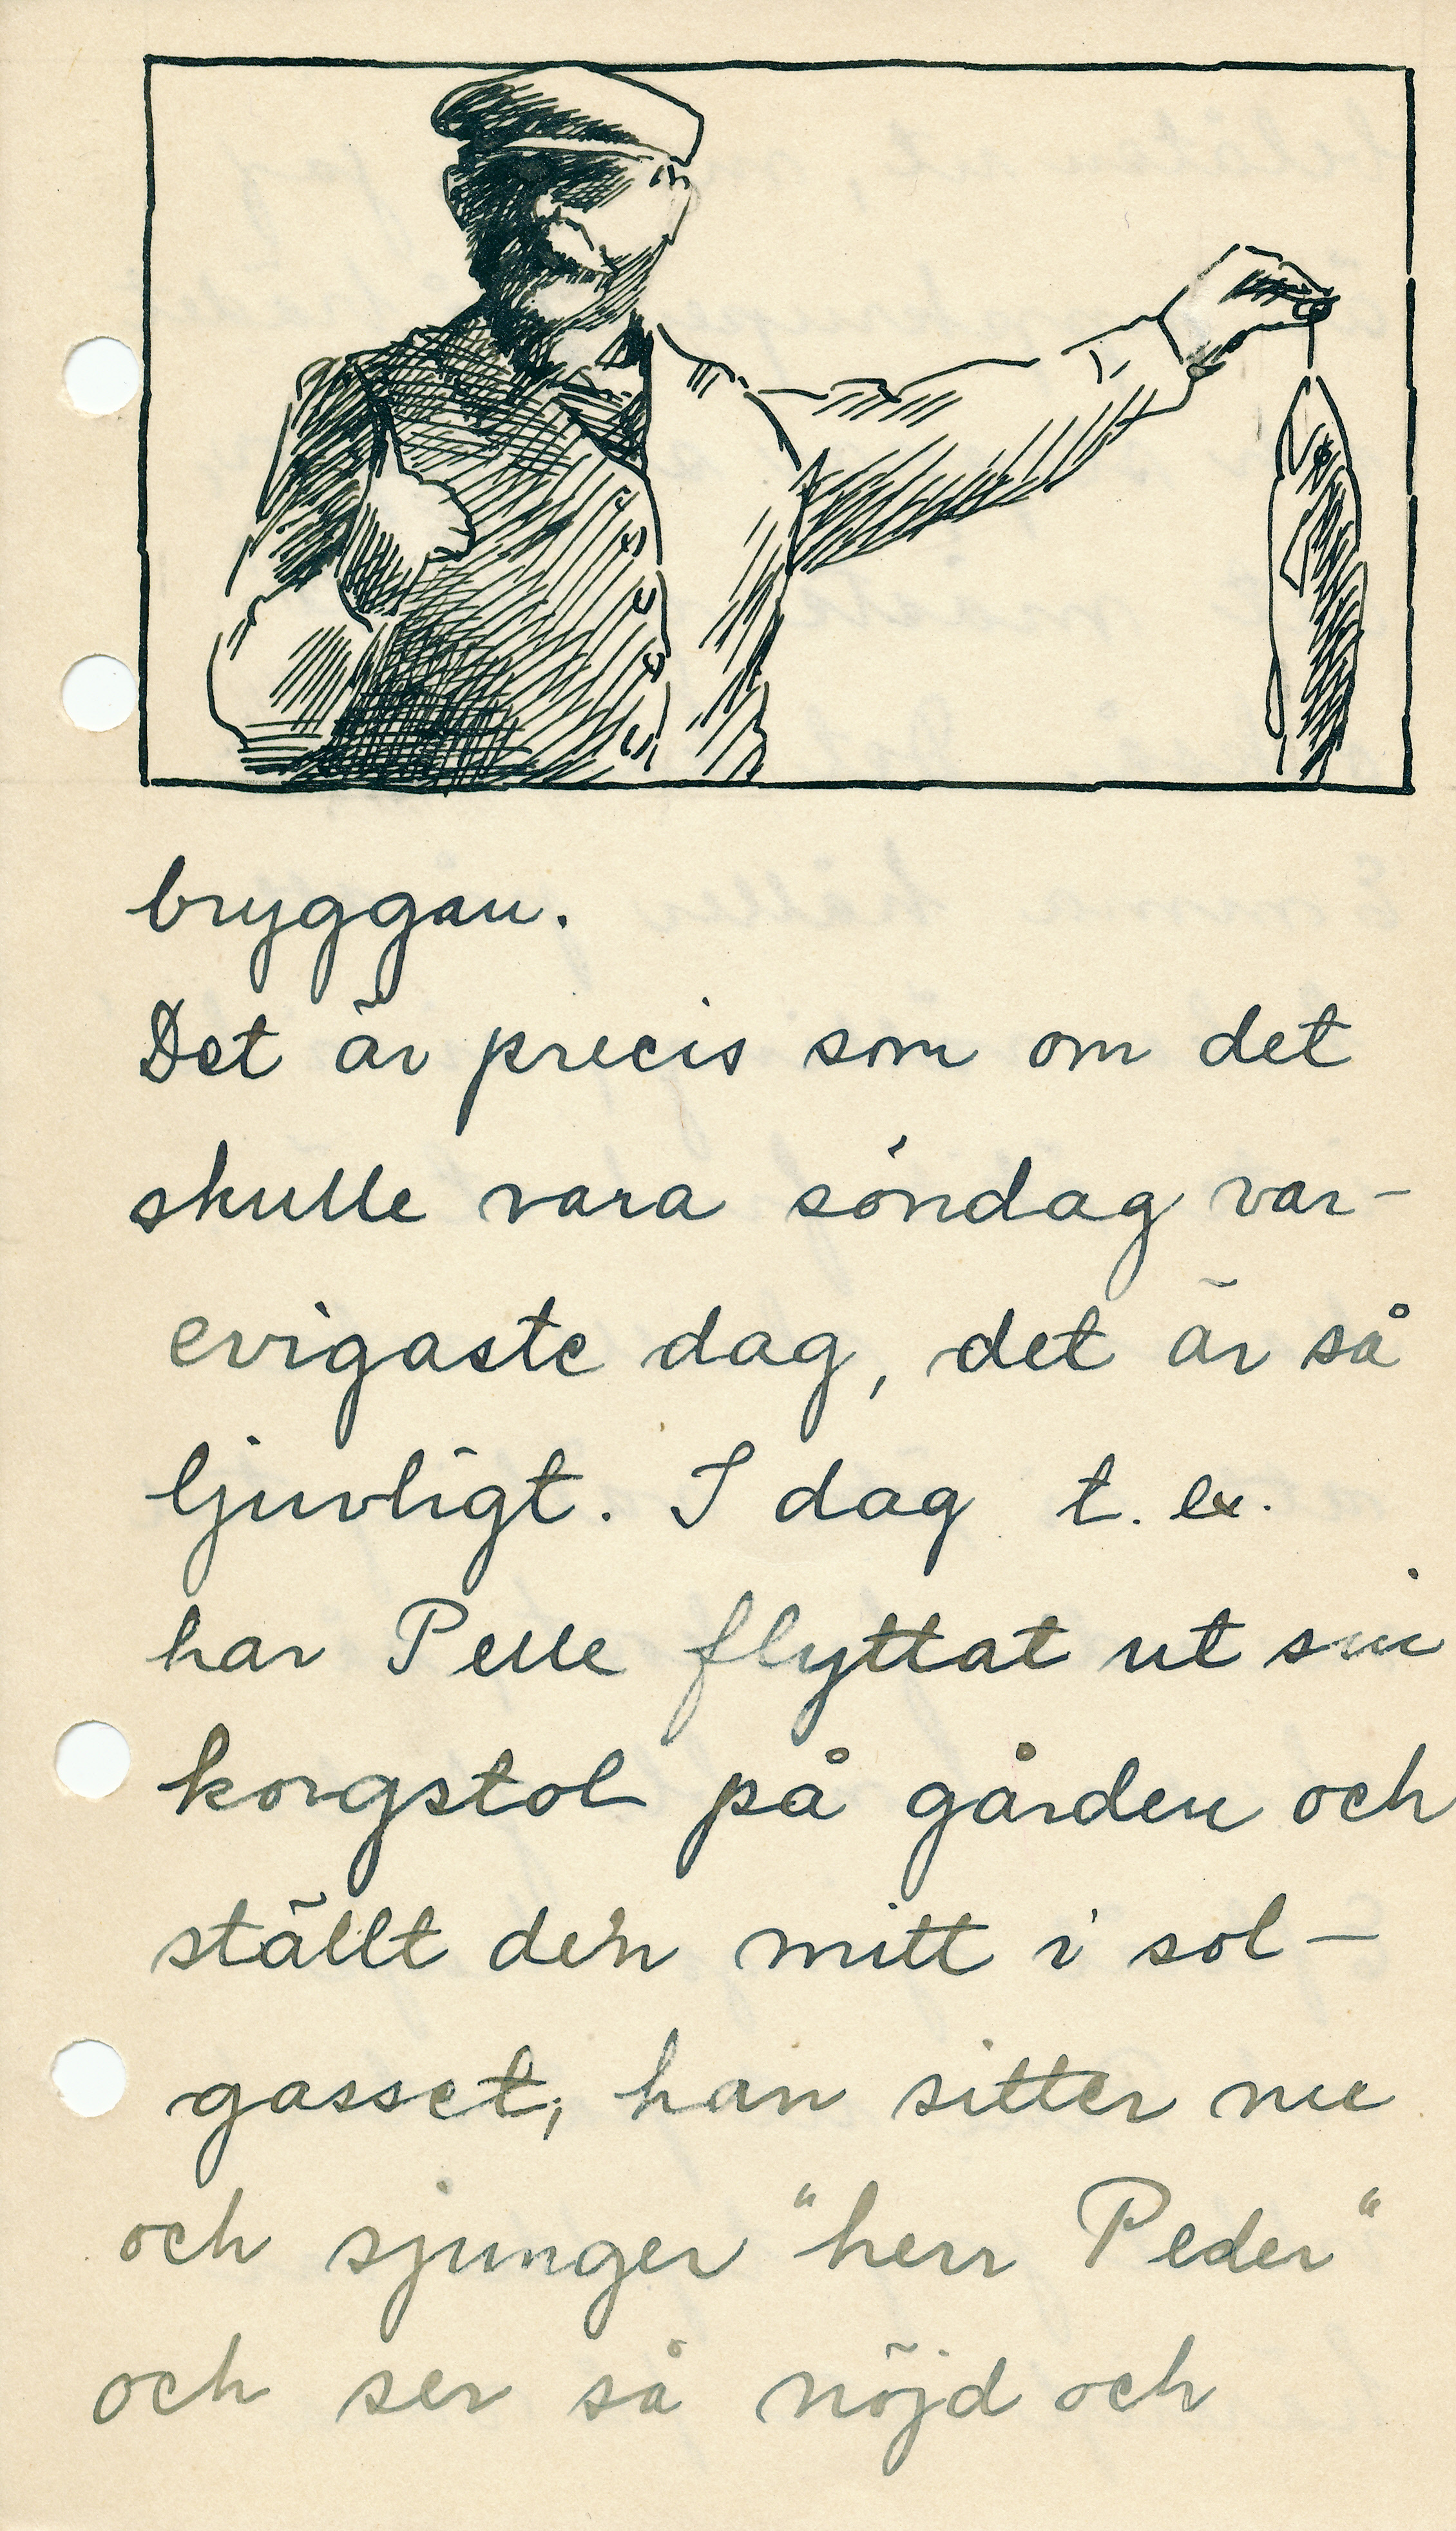 bryggan.
Det är precis som om det
skulle vara söndag var-
evigaste dag, det är så
ljuvligt. I dag t. ex.
har Pelle flyttat ut sin
korgstol på gården och
ställt den mitt i sol-
gasset, han sitter nu
och sjunger "herr Peder"
och ser så nöjd och